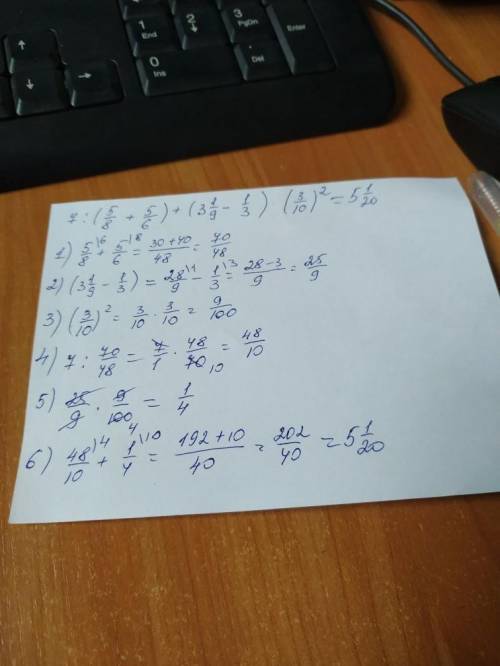 ↑ 1 End 2 ↓ 3 PgDn Enter
← ↓ → 0 Ins . Del
7 : (5/8 + 5/6) + (3 1/9 - 1/3) (3/10)² = 5 1/20
1) 5/8 \6 + 5/6 \8 = 30+40/48 = 70/48
2) (3 1/9 - 1/3) = 28/9 \1 - 1/3 \3 = 28-3/9 = 25/9
3) (3/10)² = 3/10 · 3/10 = 9/100
4) 7 : 70/48 = 7/1 · 48/70 10 = 48/10
5) 25/9 · 9/100 4 = 1/4
6) 48/10 \4 + 1/4 \10 = 192+10/40 = 202/40 = 5 1/20